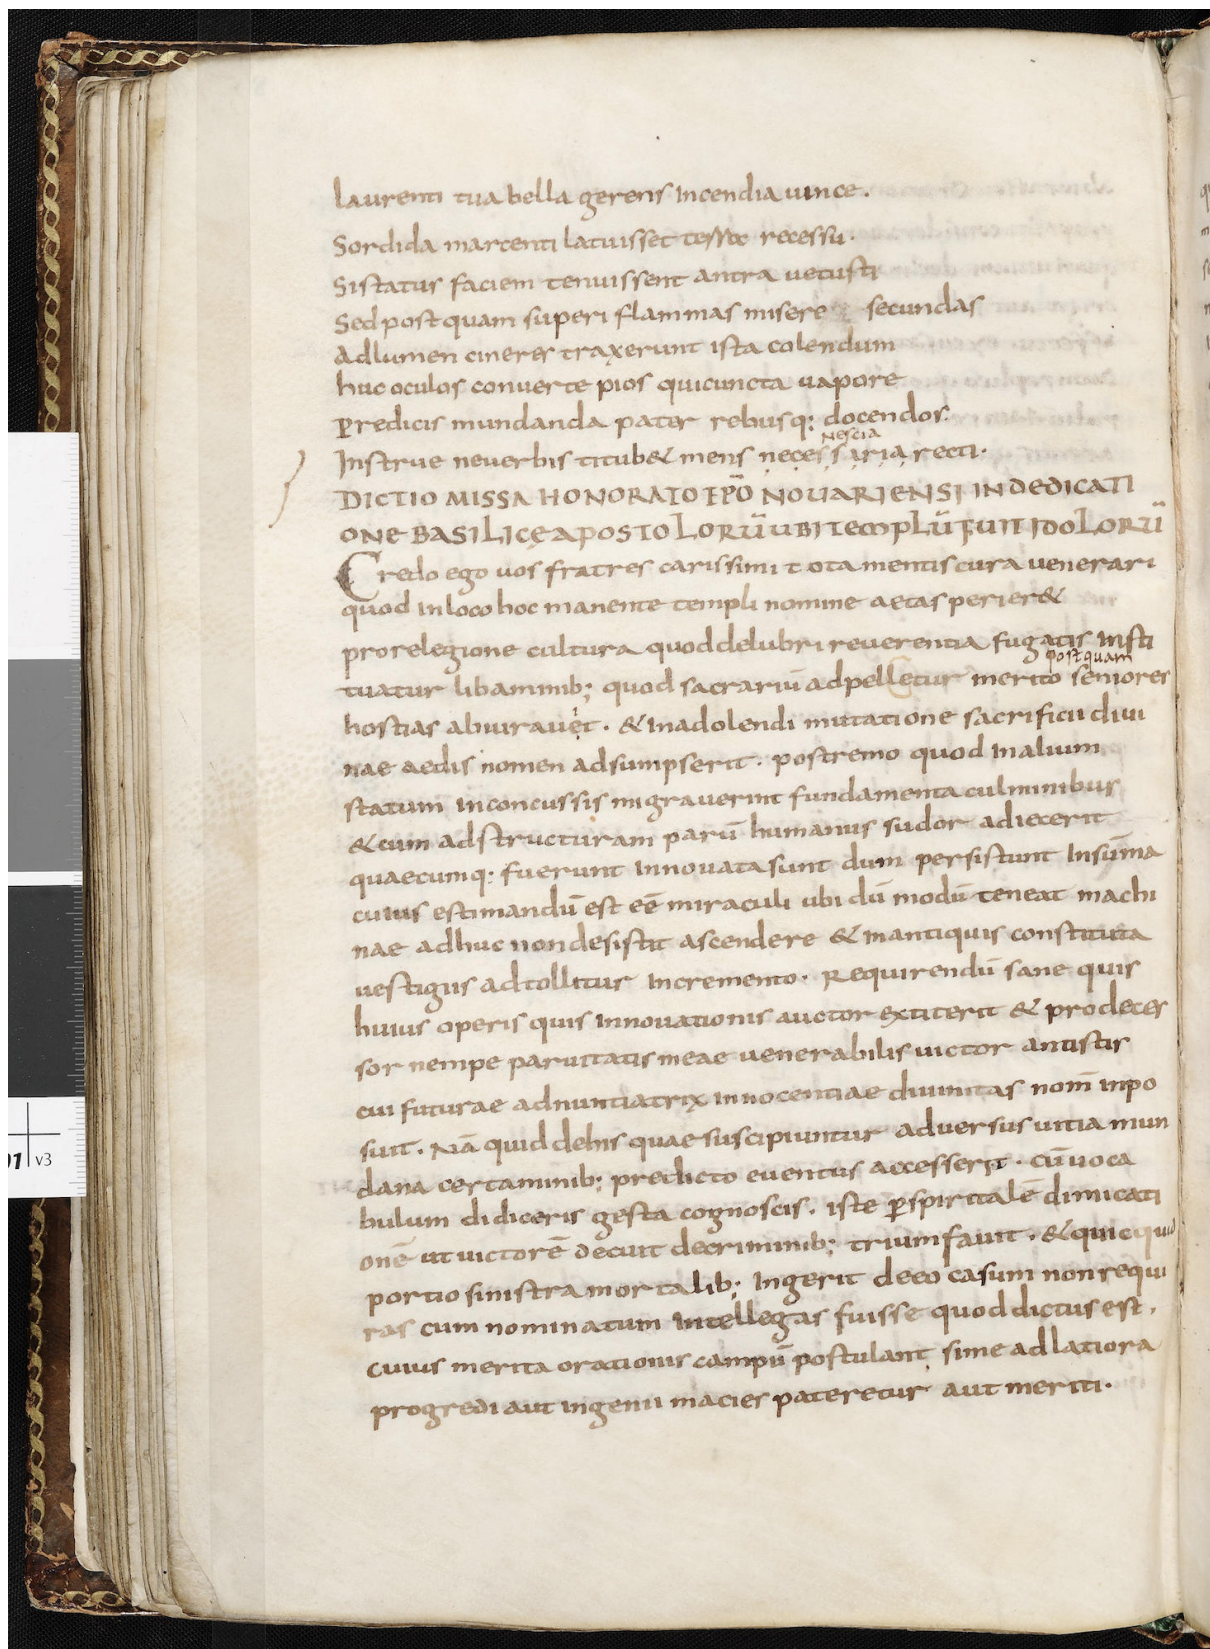 laurenti tua bella gerens Incendia uince.
Sordida marcenti latuisset recessu.
Sistatus faciem tenuissent antra uetusti
Sed postquam superi flammas misere secundas
Ad lumen cineres traxerunt ista colendum
huc oculos conuerte pios quicuncta uapore
p̄redicis mundanda pater rebusq; docendos.
Nescia
Instrue neuerbis titub& mens necessaria recti.
DICTIO MISSA HONORATO EP̄O NOUARIENSI IN DEDICATI
ONE BASILICĘ APOSTOLORŪ UBI TEMPLŪ FUIT IDOLORŪ
Credo ego uos fratres carissimi tota mentis cura uenerari
quod in loco hoc manente templi nomine aetas perier&
pro relegione cultura quod delubri reuerentia fugatis insti
postquam
tuatur libaminib; quod sacrariū adpelletur merito seniores
hostias abiurauet. & in adolendi mutatione sacrificii diui
nae aedis nomen adsumpserit. postremo quod in alium
statum inconcussis migrauerint fundamenta culminibus
& cum ad structuram parū humanus sudor adiecerit
quaecumq; fuerunt Innouata sunt dum persistunt Insūma
cuius estimandū est eē miraculi ubi dū modū teneat machi
nae adhuc non desistit ascendere & in antiquis constituta
uestigiis adtollitur Incremento. Requirendū sane quis
huius operis quis Innouationis auctor extiterit & prodeces
sor nempe paruitatis meae uenerabilis uictor antistis
cui futurae adnuntiatrix innocentiae diuinitas nom̄ inpo
suit. Nā quid de his quae suscipiuntur aduersus uitia mun
dana certaminib; predicto euentus accesserit. cū uoca
bulum didiceris gesta cognoscis. iste p̱ spiritalē dimicati
onē ut uictorē decuit decriminib; triumfauit. & quicquid
portio sinistra mortalib; Ingerit deeo casum non requi
ras cum nominatum Intellegas fuisse quod dictus est.
cuius merita orationis campū postulant sime ad latiora
progredi aut ingenii macies pateretur aut meriti.
v3